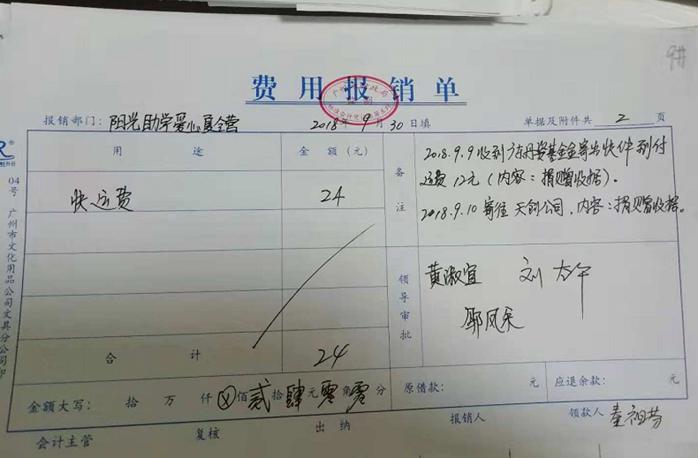 9#
费用报销单
报销部门：阳光助学爱心晨全营 2018年9月30日填 单据及附件共 2 页
用途 金额（元）
快运费 24
合计 24
备注
2018.9.9收到广东丹姿基金会寄出快件到付
运费12元（内容：捐赠收据）。
2018.9.10寄往天创公司，内容：捐赠收据。
领导审批
黄淑宜
金额大写： 拾 万 仟 ⓧ佰贰拾肆元零角零分 原借款： 元 应退余款： 元
会计主管 复核 出纳 报销人 领款人
04号 广州市文化用品公司文具分公司印